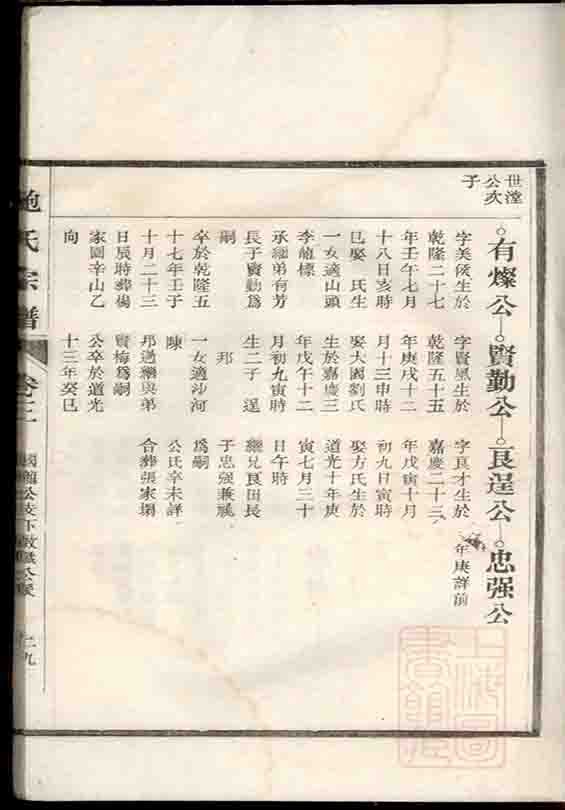 世瀅
公次
子
有燦公
賢勤公
良逞公
忠强公
字美俟生於
乾隆二十七
年壬午七月
十八日亥時
巳娶 氏生
一女適山頭
李龍標
承繼弟有芳
長子賢勤爲
嗣
卒於乾隆五
十七年壬子
十月二十三
日辰時葬楊
家園辛山乙
向
字賢凰生於
乾隆五十五
年庚戌十二
月十三申時
娶大園劉氏
生於嘉慶三
年戊午十二
月初九寅時
生二子 逞
邦
一女適沙河
陳
邦過繼與弟
賢梅爲嗣
公卒於道光
十三年癸巳
字良才生於
嘉慶二十三
年戊寅十月
初九日寅時
娶方氏生於
道光十年庚
寅七月三十
日午時
繼兄良田長
子忠强兼祧
爲嗣
公氏卒未詳
合葬張家塝
年庚詳前
氏宗譜
卷三
二九
上海圖書館